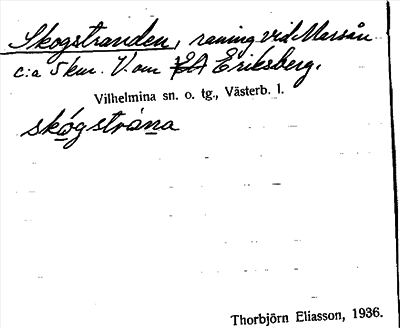 Skogstranden, raning vid Marsån
c:a 5 km. V. om Eriksberg.
Vilhelmina sn. o. tg., Västerb. l.
skógstrána
Thorbjörn Eliasson, 1936.